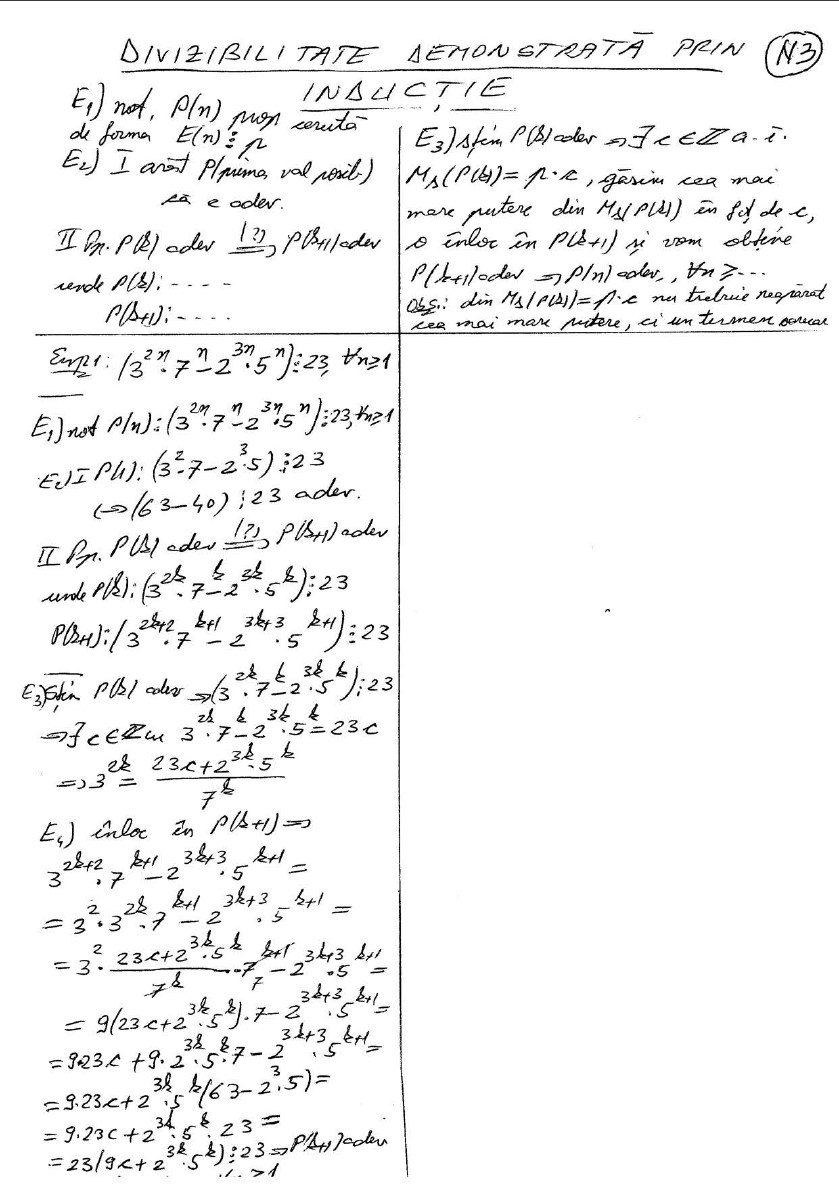 DIVIZIBILITATE DEMONSTRATĂ PRIN N3
INDUCȚIE
E₁) not. P(n) prop cerută
de forma E(n) ⋮ p
E₂) I arăt P(prima val posib.)
că e adev.
II Pp. P(k) adev =(?)=> P(k+1) adev
unde P(k): - - - -
P(k+1): - - - -
E₃) știm P(k) adev => ∃ c ∈ ℤ a. î.
M₁(P(k)) = p·c, găsim cea mai
mare putere din M₁(P(k)) în fcț de c,
o înloc în P(k+1) și vom obține
P(k+1) adev => P(n) adev., ∀n ≥ ...
Obs.: din M₁(P(k)) = p·c nu trebuie neapărat
cea mai mare putere, ci un termen oarecar
Exp1: (3^{2n}·7^n − 2^{3n}·5^n) ⋮ 23, ∀n≥1
E₁) not P(n): (3^{2n}·7^n − 2^{3n}·5^n) ⋮ 23, ∀n≥1
E₂) I P(1): (3²·7 − 2³·5) ⋮ 23
<=> (63−40) ⋮ 23 adev.
II Pp. P(k) adev =(?)=> P(k+1) adev
unde P(k): (3^{2k}·7^k − 2^{3k}·5^k) ⋮ 23
P(k+1): (3^{2k+2}·7^{k+1} − 2^{3k+3}·5^{k+1}) ⋮ 23
E₃) Știm P(k) adev => (3^{2k}·7^k − 2^{3k}·5^k) ⋮ 23
=> ∃ c ∈ ℤ cu 3^{2k}·7^k − 2^{3k}·5^k = 23c
=> 3^{2k} = (23c + 2^{3k}·5^k) / 7^k
E₄) înloc în P(k+1) =>
3^{2k+2}·7^{k+1} − 2^{3k+3}·5^{k+1} =
= 3²·3^{2k}·7^{k+1} − 2^{3k+3}·5^{k+1} =
= 3²·(23c + 2^{3k}·5^k) / 7^k ·7^{k+1} 7 − 2^{3k+3}·5^{k+1} =
= 9(23c + 2^{3k}·5^k)·7 − 2^{3k+3}·5^{k+1} =
= 9·23c + 9·2^{3k}·5^k·7 − 2^{3k+3}·5^{k+1} =
= 9·23c + 2^{3k}·5^k(63 − 2³·5) =
= 9·23c + 2^{3k}·5^k·23 =
= 23(9c + 2^{3k}·5^k) ⋮ 23 => P(k+1) adev